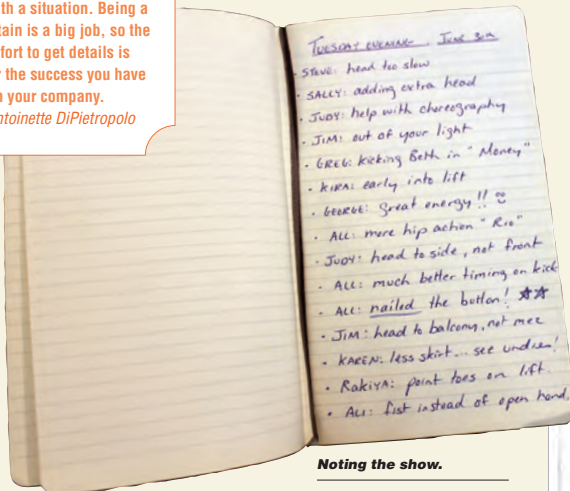 th a situation. Being a
tain is a big job, so the
fort to get details is
the success you have
your company.
ntoinette DiPietropolo
TUESDAY EVENING JUNE 3rd
· STEVE: head too slow
· SALLY: adding extra head
· JUDY: help with choreography
· JIM: out of your light
· GREG: kicking Beth in "Money"
· KIRA: early into lift
· GEORGE: Great energy!!
· ALL: more hip action "Rio"
· JUDY: head to side, not front
· ALL: much better timing on kick
· ALL: nailed the button!
· JIM: head to balcony, not mezz
· KAREN: less skirt... see undies!
· RAKIYA: point toes on lift.
· ALL: fist instead of open hand.
Noting the show.